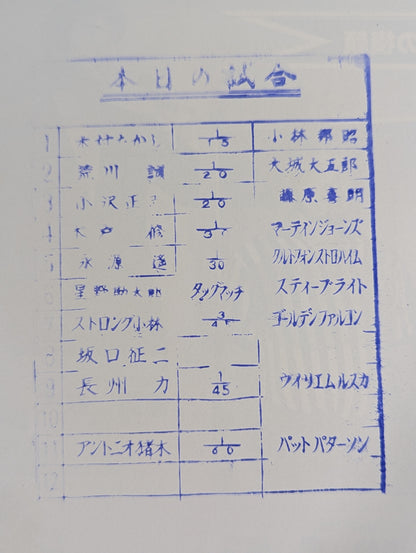 本日の試合
1 木村たかし 1/15 小林邦昭
2 荒川 誠 1/20 大城大五郎
3 小沢正 1/20 藤原喜明
4 木戸 修 マーティンジョーンズ
5 永源 遙 /30 クルトフォンストロハイム
6 星野勘太郎 タッグマッチ スティーブライト
7 ストロング小林 3/45 ゴールデンファルコン
8 坂口征二
9 長州 力 1/45 ウイリエムルスカ
10
11 アントニオ猪木 1/60 パットパターソン
12